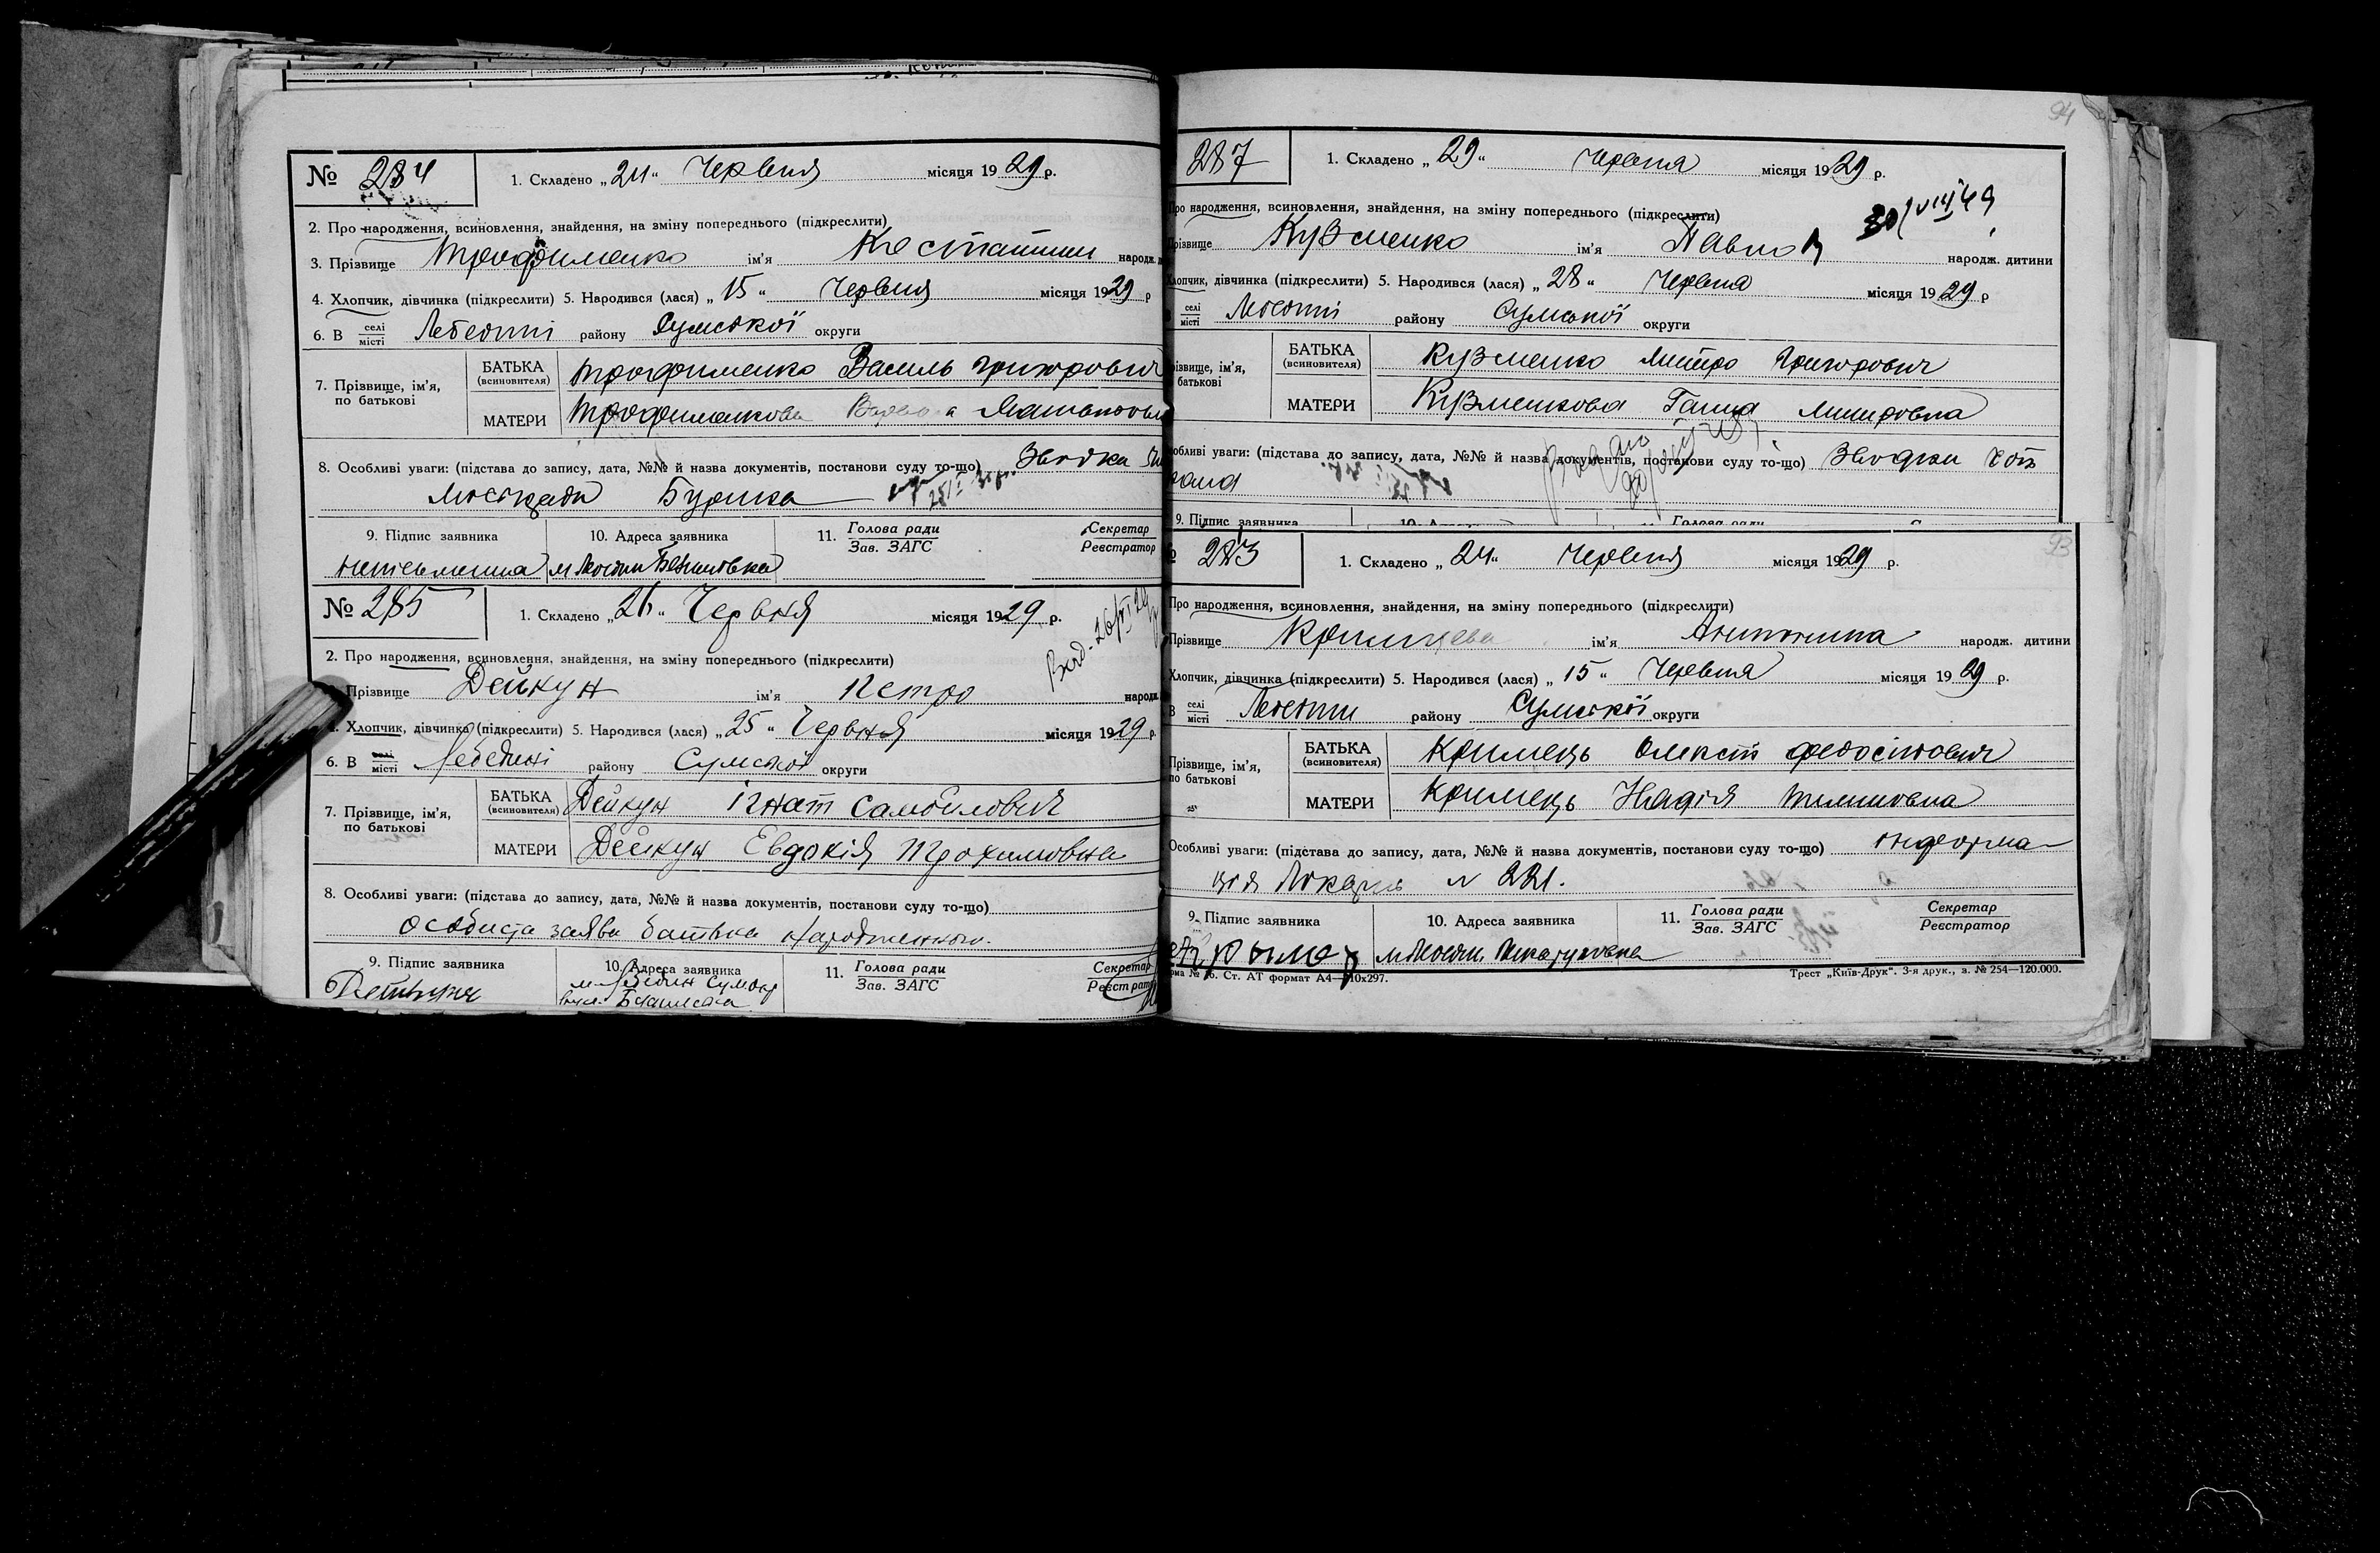 № 284
1. Складено „ 24 “ Червня місяця 19 29 р.
2. Про народження, всиновлення, знайдення, на зміну попереднього (підкреслити)
3. Прізвище Трофименко ім'я народж.
4. Хлопчик, дівчинка (підкреслити) 5. Народився (лася) „ 15 “ Червня місяця 19 29 р
6. В селі місті Лебедині району Сумської округи
7. Прізвище, ім'я, по батькові
БАТЬКА (всиновителя) Трофименко Василь Григорович
МАТЕРИ Трофименкова
8. Особливі уваги: (підстава до запису, дата, №№ й назва документів, постанови суду то-що) Зводка
9. Підпис заявника 10. Адреса заявника 11. Голова ради Зав. ЗАГС Секретар Реєстратор
неписьменна
№ 285
1. Складено „ 26 “ Червня місяця 19 29 р.
2. Про народження, всиновлення, знайдення, на зміну попереднього (підкреслити)
Прізвище Дейкун ім'я Петро народж.
Хлопчик, дівчинка (підкреслити) 5. Народився (лася) „ 25 “ Червня місяця 19 29 р.
6. В селі місті Лебедині району Сумської округи
7. Прізвище, ім'я, по батькові
БАТЬКА (всиновителя) Дейкун Ігнат Самойлович
МАТЕРИ Дейкун Евдокія Трохимовна
8. Особливі уваги: (підстава до запису, дата, №№ й назва документів, постанови суду то-що)
Особиста заява батька
9. Підпис заявника 10. Адреса заявника 11. Голова ради Зав. ЗАГС Секретар Реєстратор
м. Лебедин
94
287
1. Складено „ 29 “ Червня місяця 19 29 р.
Про народження, всиновлення, знайдення, на зміну попереднього (підкреслити)
30/VIII 49
Прізвище Кузменко ім'я Павло народж. дитини
Хлопчик, дівчинка (підкреслити) 5. Народився (лася) „ 28 “ Червня місяця 19 29 р
селі місті Лебедині району Сумської округи
Прізвище, ім'я, батькові
БАТЬКА (всиновителя) Кузменко Митро Григорович
МАТЕРИ Кузменкова Ганна
Особливі уваги: (підстава до запису, дата, №№ й назва документів, постанови суду то-що) Зводка
9. Підпис заявника
93
283
1. Складено „ 24 “ Червня місяця 19 29 р.
Про народження, всиновлення, знайдення, на зміну попереднього (підкреслити)
Прізвище ім'я Антонина народж. дитини
Хлопчик, дівчинка (підкреслити) 5. Народився (лася) „ 15 “ Червня місяця 19 29 р.
В селі місті Лебедини району Сумської округи
Прізвище, ім'я, по батькові
БАТЬКА (всиновителя) Кримець Олексій Федосійович
МАТЕРИ Кримець Надія
Особливі уваги: (підстава до запису, дата, №№ й назва документів, постанови суду то-що) Информа-
ція № 221.
9. Підпис заявника 10. Адреса заявника 11. Голова ради Зав. ЗАГС Секретар Реєстратор
Ст. АТ формат А4—210х297. Трест „Київ-Друк“. 3-я друк., з. № 254—120.000.